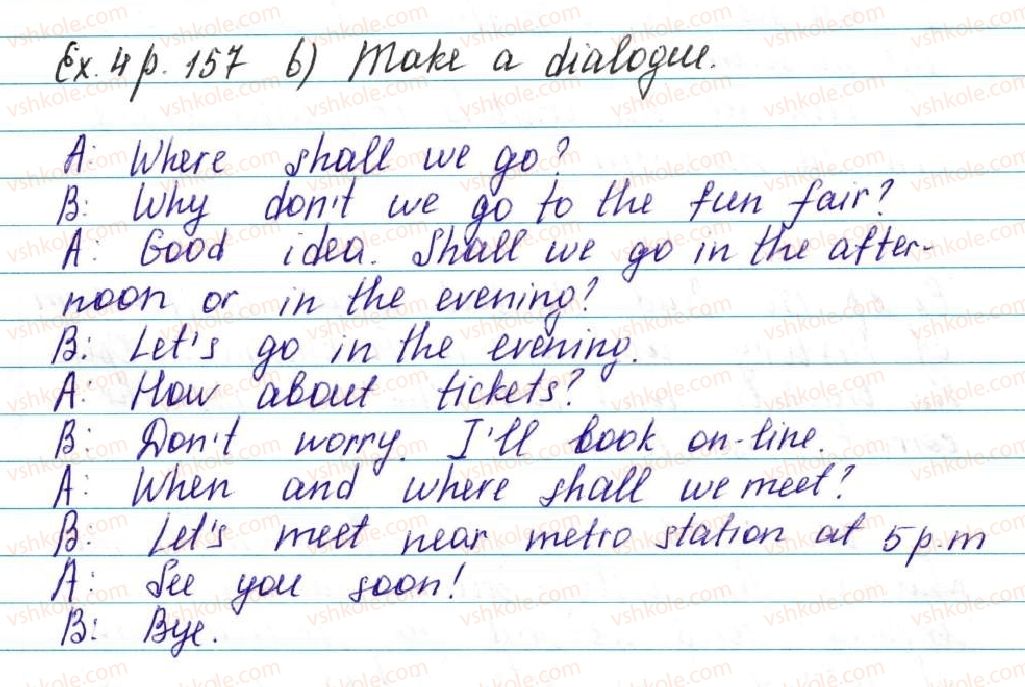 Ex. 4 p. 157 б) Make a dialogue.
A: Where shall we go?
B: Why don't we go to the fun fair?
A: Good idea. Shall we go in the after-
noon or in the evening?
B: Let's go in the evening.
A: How about tickets?
B: Don't worry. I'll book on-line.
A: When and where shall we meet?
B: Let's meet near metro station at 5 p.m
A: See you soon!
B: Bye.
vshkole.com